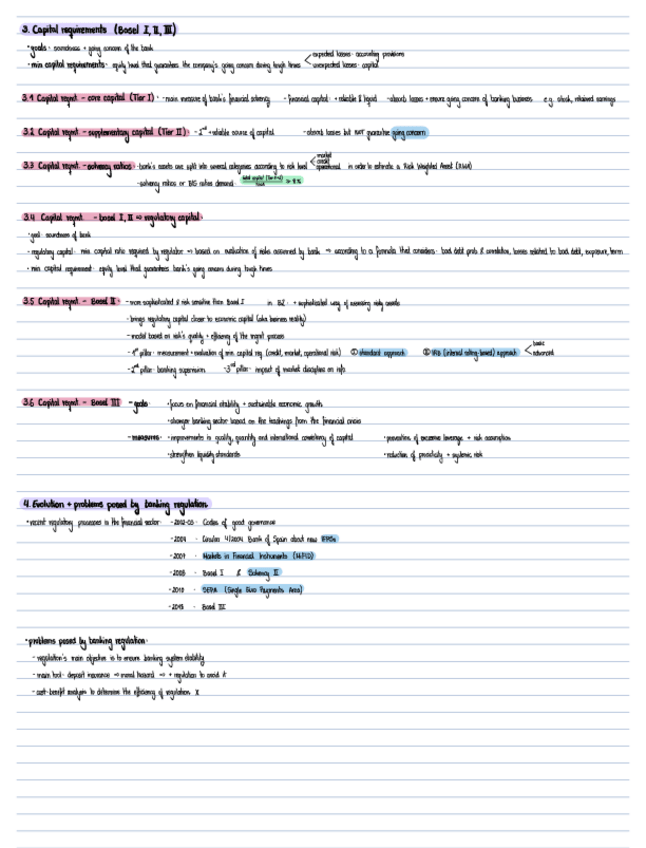 3. Capital requirements (Basel I, II, III)
· goals · soundness + going concern of the bank
· min capital requirements · equity level that guarantees the company's going concern during tough times < expected losses · accounting provisions
unexpected losses · capital
3.1 Capital reqmt - core capital (Tier I) · - main measure of bank's financial solvency - financial capital · + reliable & liquid - absorb losses + ensure going concern of banking business e.g. stock, retained earnings
3.2 Capital reqmt - supplementary capital (Tier II) · - 2nd + reliable source of capital - absorb losses but NOT guarantee going concern
3.3 Capital reqmt - solvency ratios · bank's assets are split into several categories according to risk level < market
credit
operational in order to estimate a Risk Weighted Asset (RWA)
- solvency ratios or BIS ratios demand ·
3.4 Capital reqmt. - basel I, II ⇒ regulatory capital ·
· goal · soundness of bank
· regulatory capital · min capital ratio required by regulator ⇒ based on evaluation of risks assumed by bank ⇒ according to a formula that considers · bad debt prob & correlation, losses related to bad debt, exposure, term
· min capital requirement · equity level that guarantees bank's going concern during tough times
3.5 Capital reqmt - Basel II · - more sophisticated & risk sensitive than Basel I in B2 · + sophisticated way of assessing risky assets
- brings regulatory capital closer to economic capital (aka business reality)
- model based on risk's quality + efficiency of the mgmt process
- 1st pillar · measurement + evaluation of min. capital req (credit, market, operational risk) ① standard approach ② IRB (internal rating-based) approach < basic
advanced
- 2nd pillar · banking supervision - 3rd pillar · impact of market discipline on info
3.6 Capital reqmt - Basel III - goals · · focus on financial stability + sustainable economic growth
· stronger banking sector based on the teachings from the financial crisis
- measures · · improvements in quality, quantity and international consistency of capital · prevention of excessive leverage + risk assumption
· strengthen liquidity standards · reduction of procyclicity + systemic risk
4. Evolution + problems posed by banking regulation
· recent regulatory processes in the financial sector · - 2002-03 · Codes of good governance
- 2004 · Circular 4/2004 Bank of Spain about new IFRSs
Markets in Financial Instruments (MiFID)
- 2008 · & Solvency II
- 2010 · SEPA (Single Euro Payments Area)
Basel III
· problems posed by banking regulation ·
- regulation's main objective is to ensure banking system stability
- main tool · deposit insurance ⇒ moral hazard ⇒ + regulation to avoid it
- cost-benefit analysis to determine the efficiency of regulation